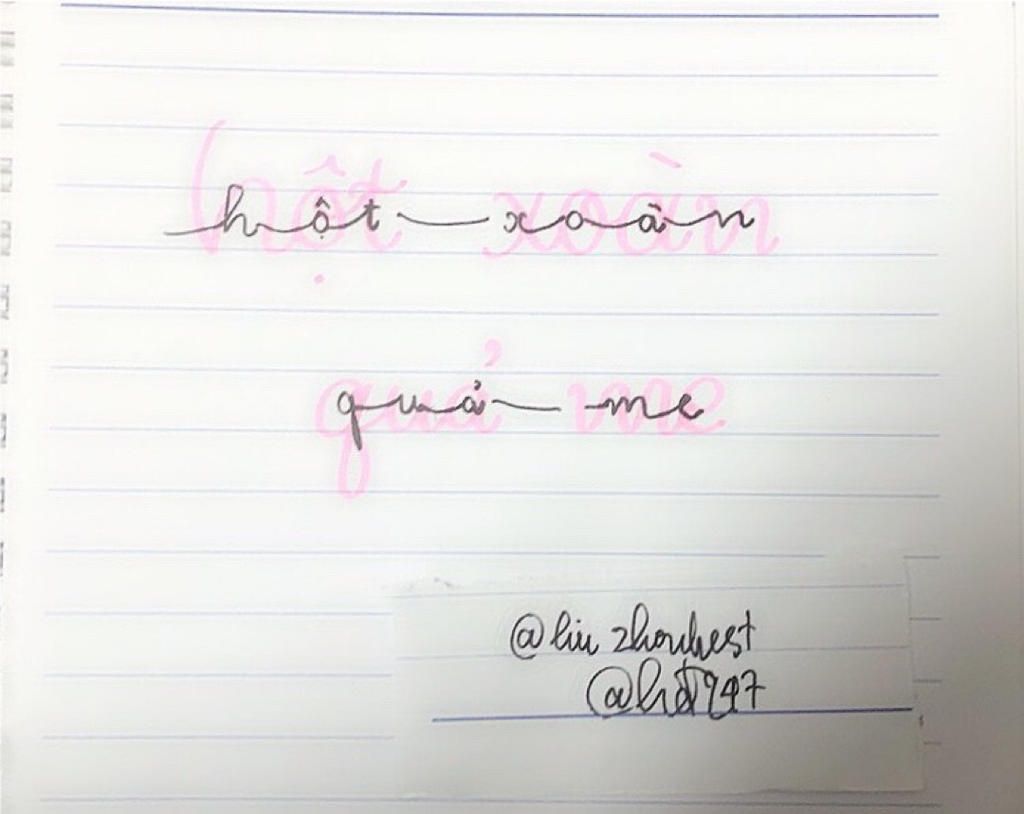 hột xoàn
quả me
@liu zhoubest
@hđ1997